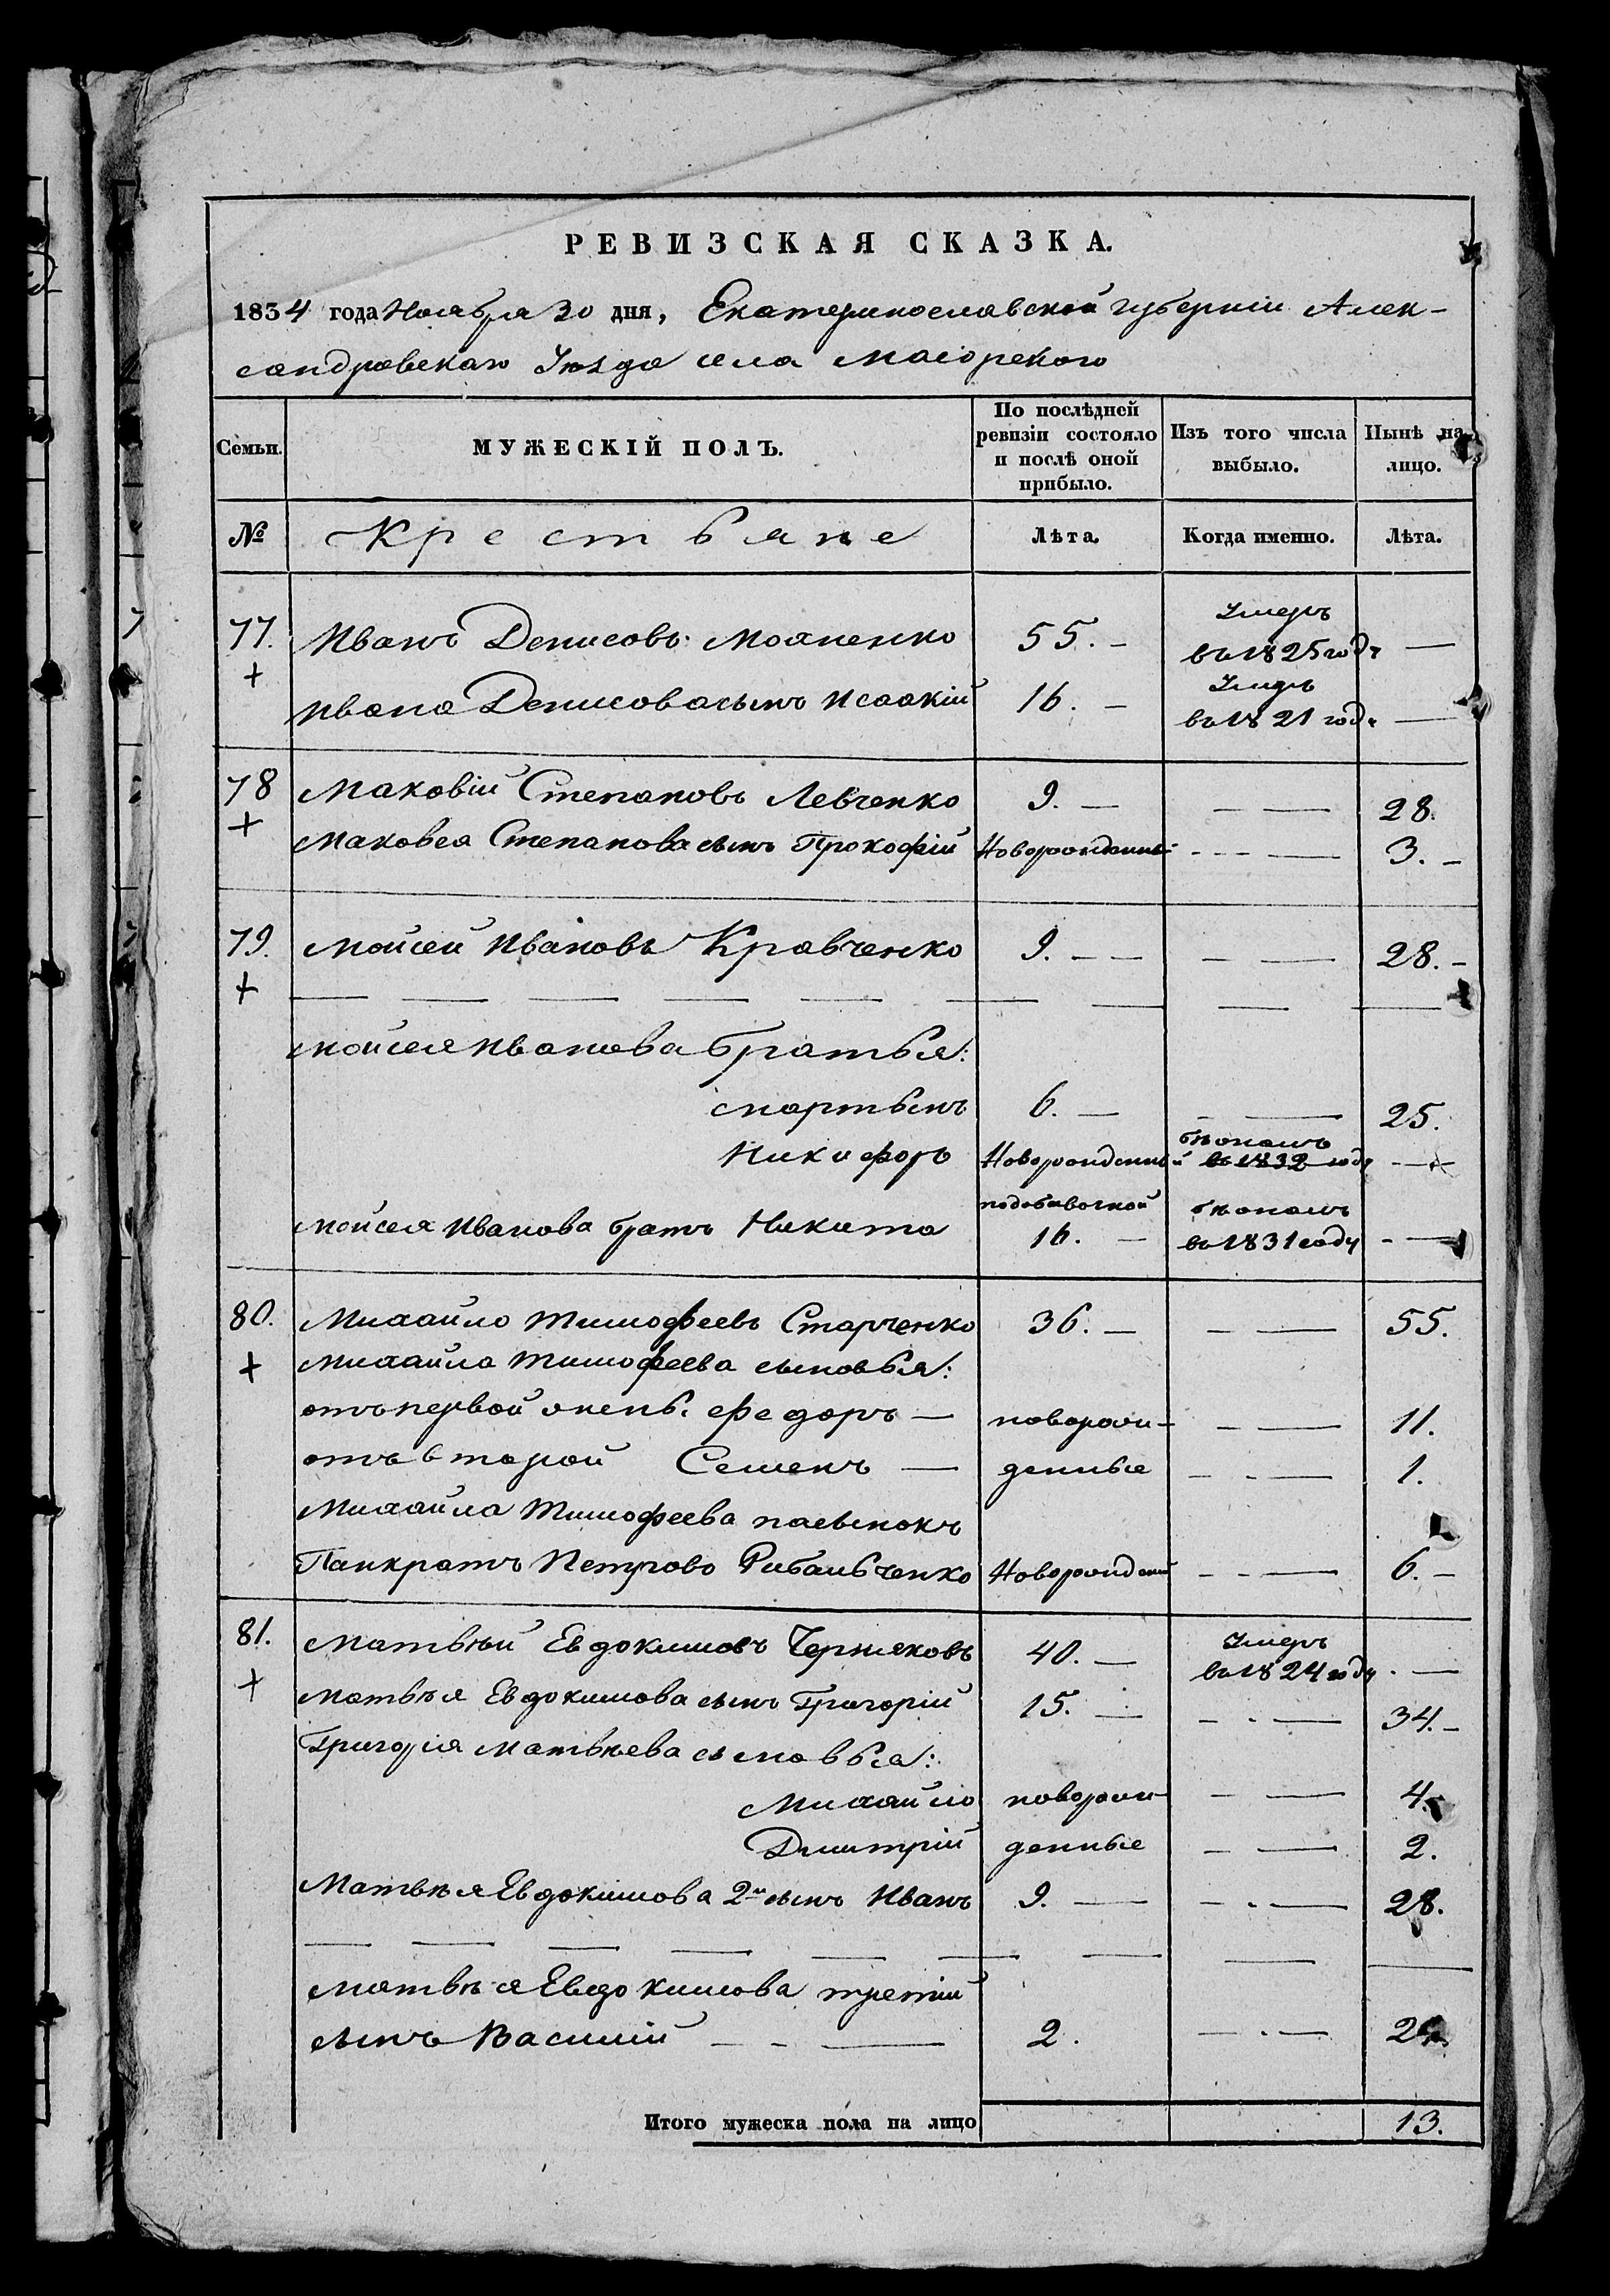 РЕВИЗСКАЯ СКАЗКА.
1834 года Ноября 30 дня, Екатеринославской губерніи Алек-
сандровскаго Уѣзда села Маіорского
Семьи. МУЖЕСКІЙ ПОЛЪ. По послѣдней ревизіи состояло и послѣ оной прибыло. Изъ того числа выбыло. Нынѣ на лицо.
№ Крестьяне Лѣта. Когда именно. Лѣта.
77. Иванъ Денисовъ 55. — Умеръ въ 1825 году —
+ Ивана Денисова сынъ Исаакій 16. — Умеръ въ 1821 году —
78 Маковій Степановъ Левченко 9. — — — 28.
+ Маковея Степанова сынъ Прокофій Новорожденный - - - — 3. -
79. Мойсей Ивановъ Кравченко 9. - — - — 28. -
+ — — — — — — — — —
Мойсея Иванова братья:
Мартынъ 6. — - — 25.
Никифоръ Новорожденный бѣжалъ въ 1832 году - —
Мойсея Иванова братъ Никита 16. — бѣжалъ въ 1831 году - —
80. Михайло Тимофеевъ Старченко 36. — - — 55.
+ Михайла Тимофеева сыновья:
отъ первой жены Федоръ — новорож- - — 11.
отъ второй Семенъ — денные - - — 1.
Михайла Тимофеева пасынокъ
Панкратъ Петрово Новорожденный - - — 6. -
81. Матвѣй Евдокимовъ Черняковъ 40. — Умеръ въ 1824 году - —
+ Матвѣя Евдокимова сынъ Григорій 15. — - - — 34. -
Григорія Матвѣева сыновья:
Михайло новорож- - — 4.
Дмитрій денные - — 2.
Матвѣя Евдокимова 2й сынъ Иванъ 9. — - - — 28.
— — — — — — — — —
Матвѣя Евдокимова третій
сынъ Василій - - — 2. — - —
Итого мужеска пола на лицо 13.